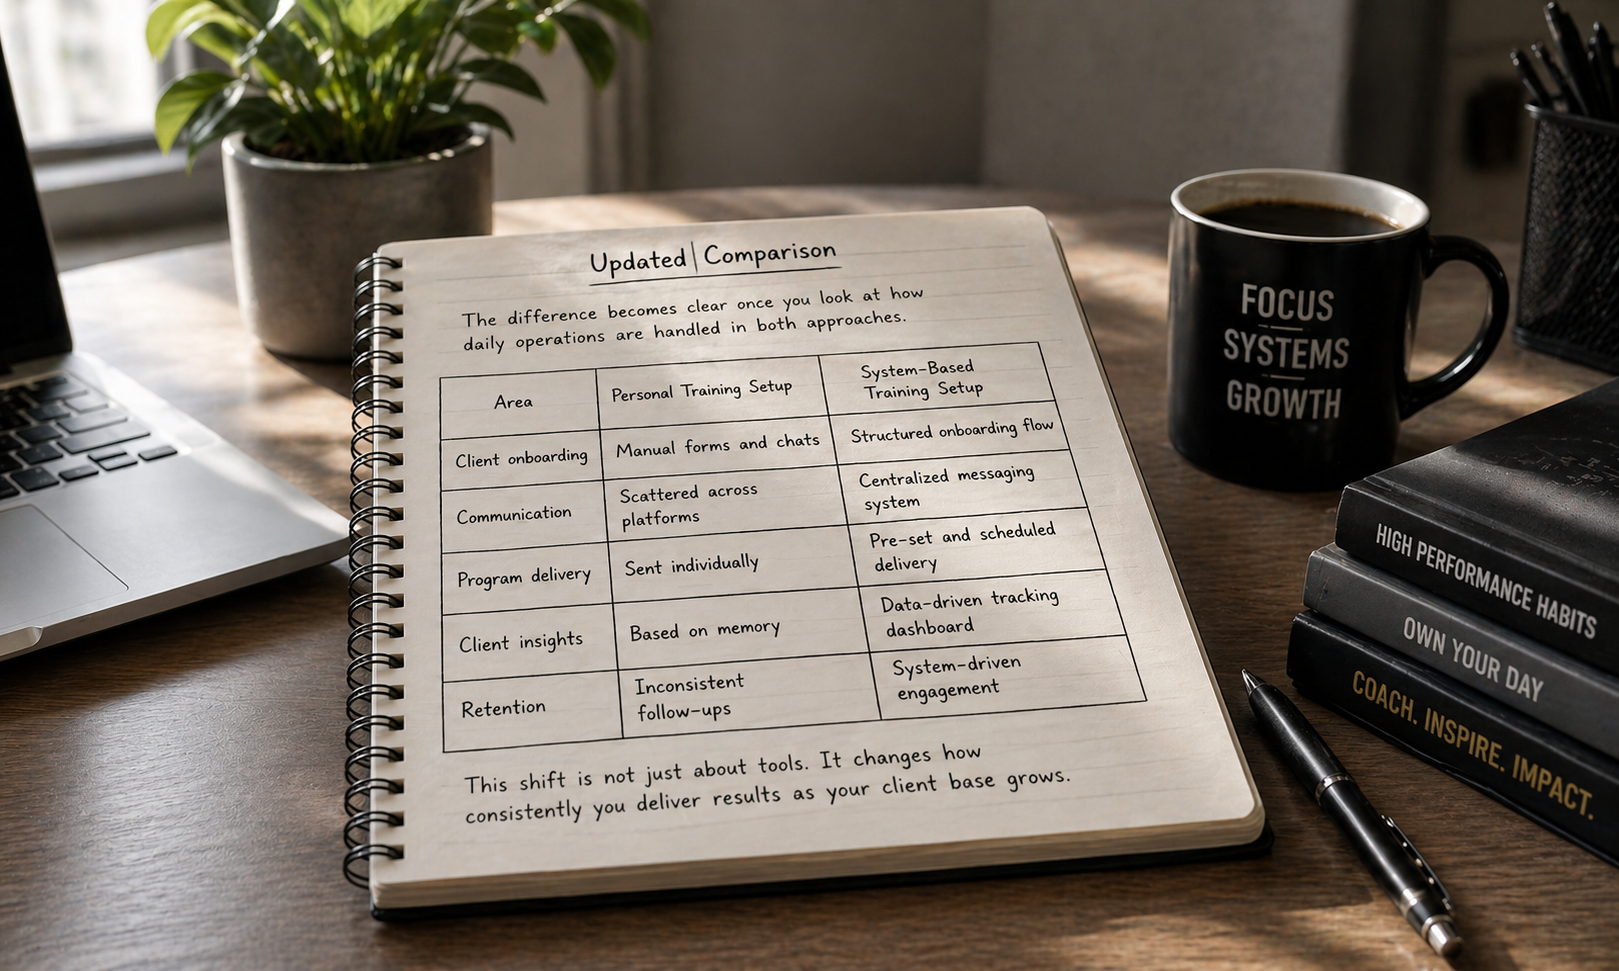 Updated | Comparison
The difference becomes clear once you look at how
daily operations are handled in both approaches.
Area
Personal Training Setup
System-Based
Training Setup
Client onboarding
Manual forms and chats
Structured onboarding flow
Communication
Scattered across
platforms
Centralized messaging
system
Program delivery
Sent individually
Pre-set and scheduled
delivery
Client insights
Based on memory
Data-driven tracking
dashboard
Retention
Inconsistent
follow-ups
System-driven
engagement
This shift is not just about tools. It changes how
consistently you deliver results as your client base grows.
FOCUS
SYSTEMS
GROWTH
HIGH PERFORMANCE HABITS
OWN YOUR DAY
COACH. INSPIRE. IMPACT.